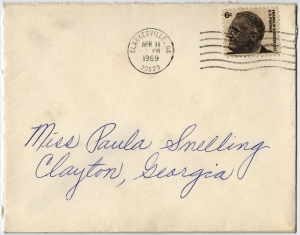 CLARKESVILLE, GA
APR 11
PM
1969
30523
6¢
Miss Paula Snelling
Clayton, Georgia